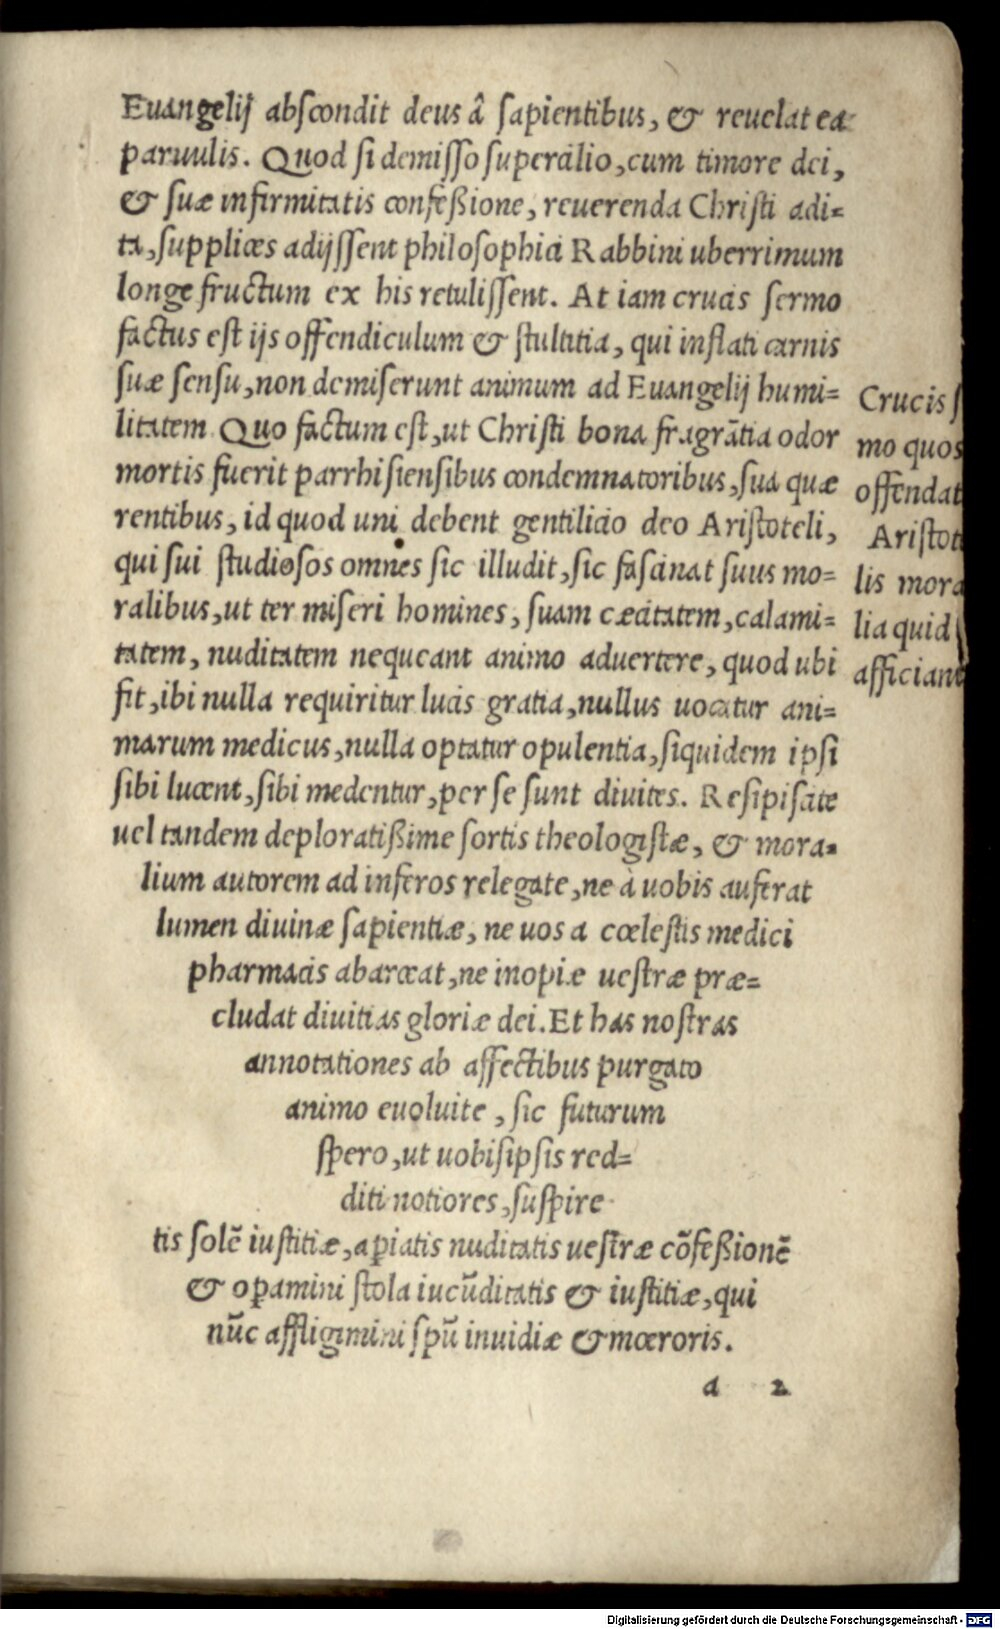 Euangelij abscondit deus â sapientibus, & reuelat ea
paruulis. Quod si demisso supercilio, cum timore dei,
& suæ infirmitatis confeßione, reuerenda Christi adi=
ta, supplices adijssent philosophici Rabbini uberrimum
longe fructum ex his retulissent. At iam crucis sermo
factus est ijs offendiculum & stultitia, qui inflati carnis
suæ sensu, non demiserunt animum ad Euangelij humi=
litatem Quo factum est, ut Christi bona fragrātia odor
mortis fuerit parrhisiensibus condemnatoribus, sua quæ
rentibus, id quod uni debent gentilicio deo Aristoteli,
qui sui studiosos omnes sic illudit, sic fascinat suus mo=
ralibus, ut ter miseri homines, suam cæcitatem, calami=
tatem, nuditatem nequeant animo aduertere, quod ubi
fit, ibi nulla requiritur lucis gratia, nullus uocatur ani=
marum medicus, nulla optatur opulentia, siquidem ipsi
sibi lucent, sibi medentur, per se sunt diuites. Resipiscite
uel tandem deploratißime sortis theologistæ, & mora=
lium autorem ad inferos relegate, ne à uobis auferat
lumen diuinæ sapientiæ, ne uos a cœlestis medici
pharmacis abarceat, ne inopiæ uestræ præ=
cludat diuitias gloriæ dei. Et has nostras
annotationes ab affectibus purgato
animo euoluite, sic futurum
spero, ut uobisipsis red=
diti notiores, suspire
tis solē iustitiæ, apiatis nuditatis uestræ cōfeßionē
& opamini stola iucūditatis & iustitiæ, qui
nūc affligimini spū inuidiæ & mœroris.
a 2
Crucis s
mo quos
offendat
Aristot
lis mora
lia quid
afficiant
Digitalisierung gefördert durch die Deutsche Forschungsgemeinschaft - DFG